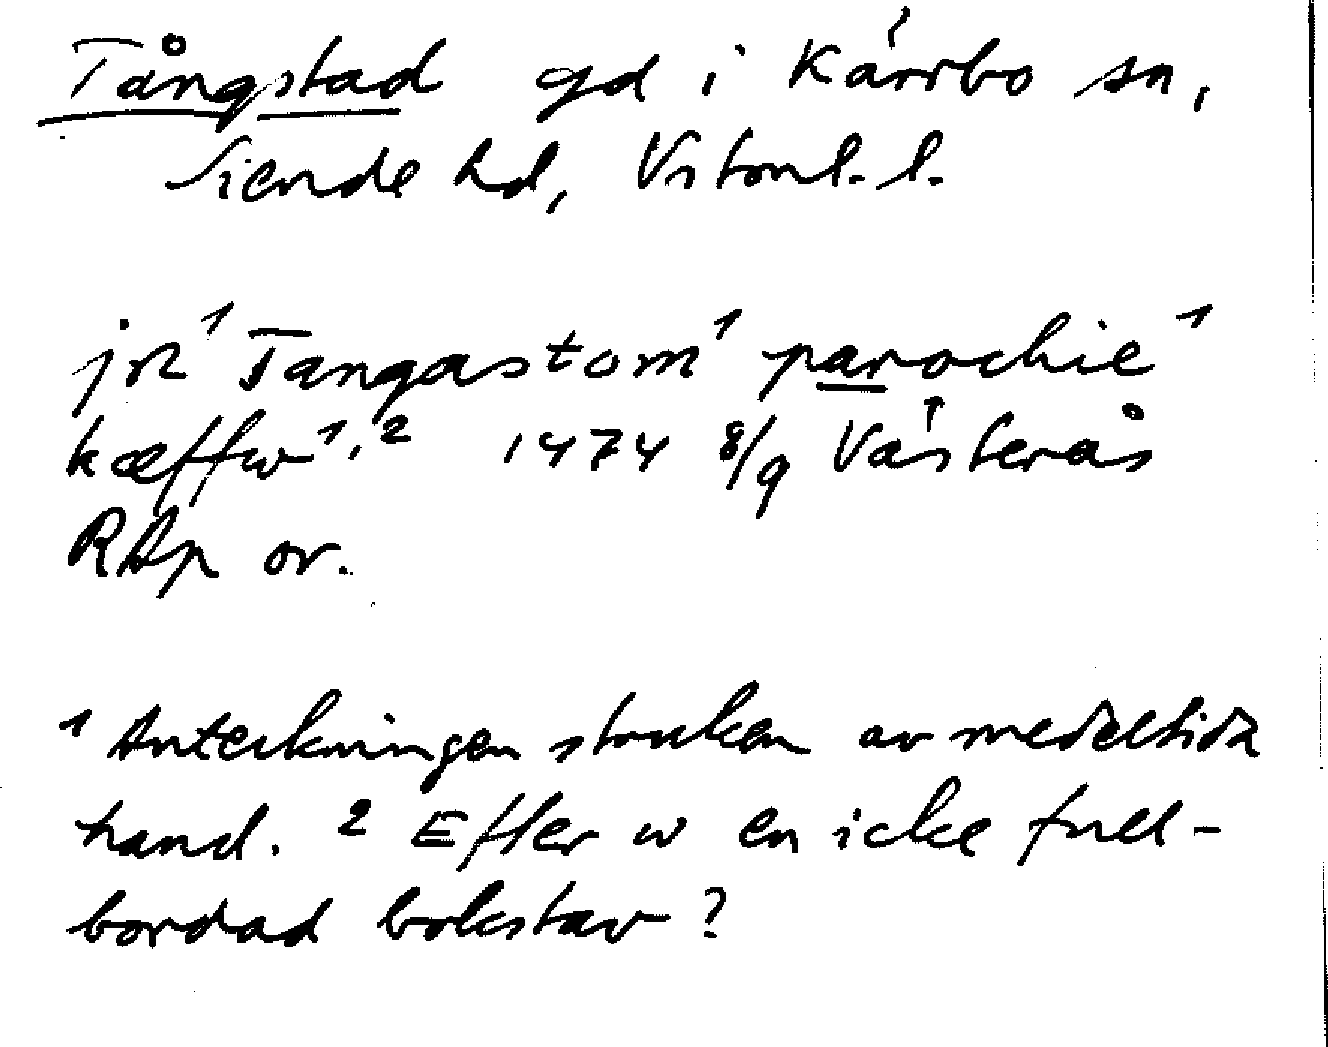 Tångstad gd i Kärrbo sn,
Siende hd, Vstml. l.
jn ¹Tangastom¹ parochie¹
kæffw¹,² 1474 8/9 Västerås
RAp or.
¹ Anteckningen struken av medeltida
hand. ² Efter w en icke full-
bordad bokstav?